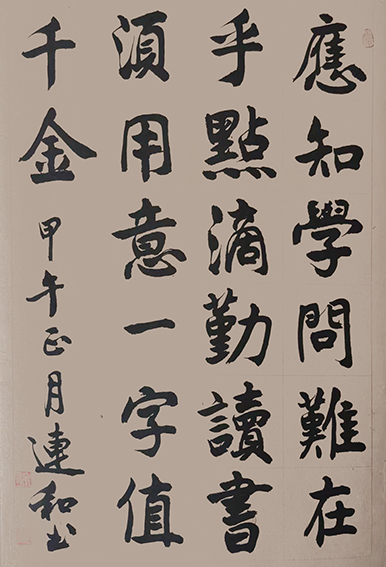 應知學問難在
乎點滴勤讀書
須用意一字值
千金
甲午正月連和書